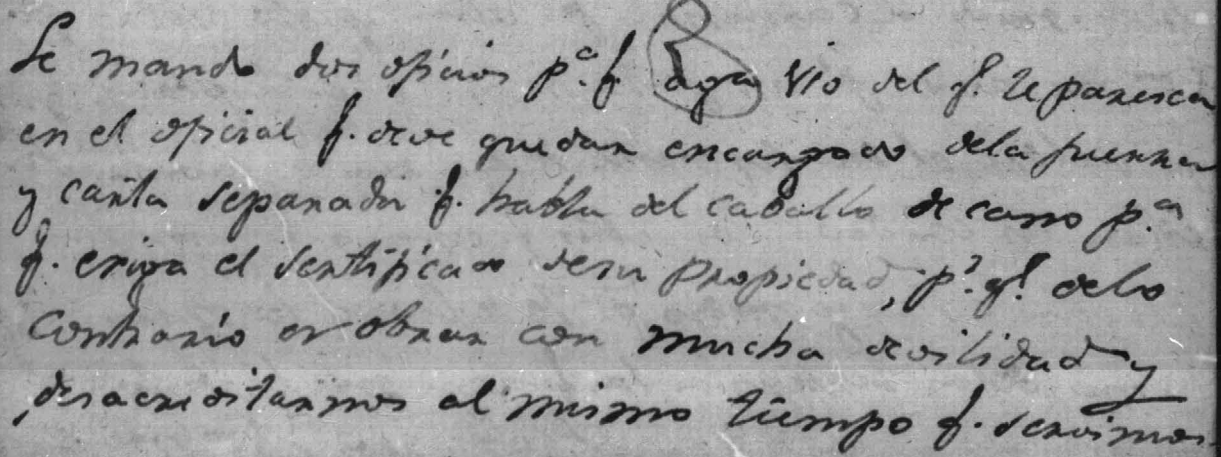 Le mando dos oficios pª. q. aga Vso del q. le paresca
en el oficial q. deve quedar encargado dela fuerza
y carta separada q. habla del caballo de carro pª
q. exiga el sertificado desu propiedad, pr. qe. delo
contrario es obrar con mucha devilidad y
desacreditarnos al mismo tiempo q. servimos.